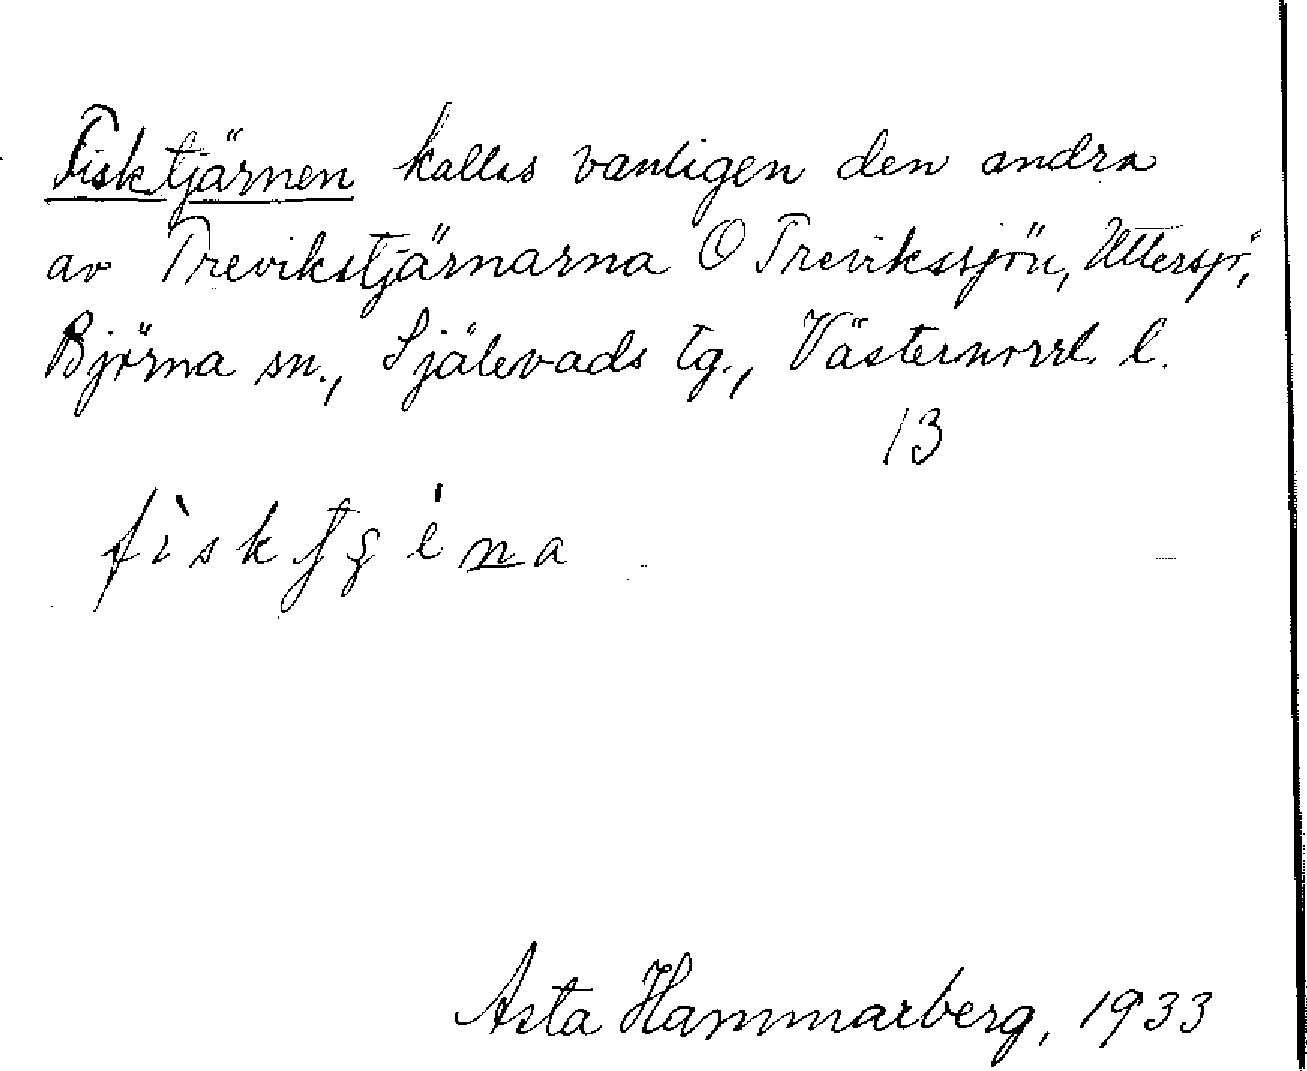 Fisktjärnen kallas vanligen den andra
av Trevikstjärnarna O Trevikssjön, Uttersjö,
Björna sn., Själevads tg., Västernorrl. l.
13
Asta Hammarberg, 1933